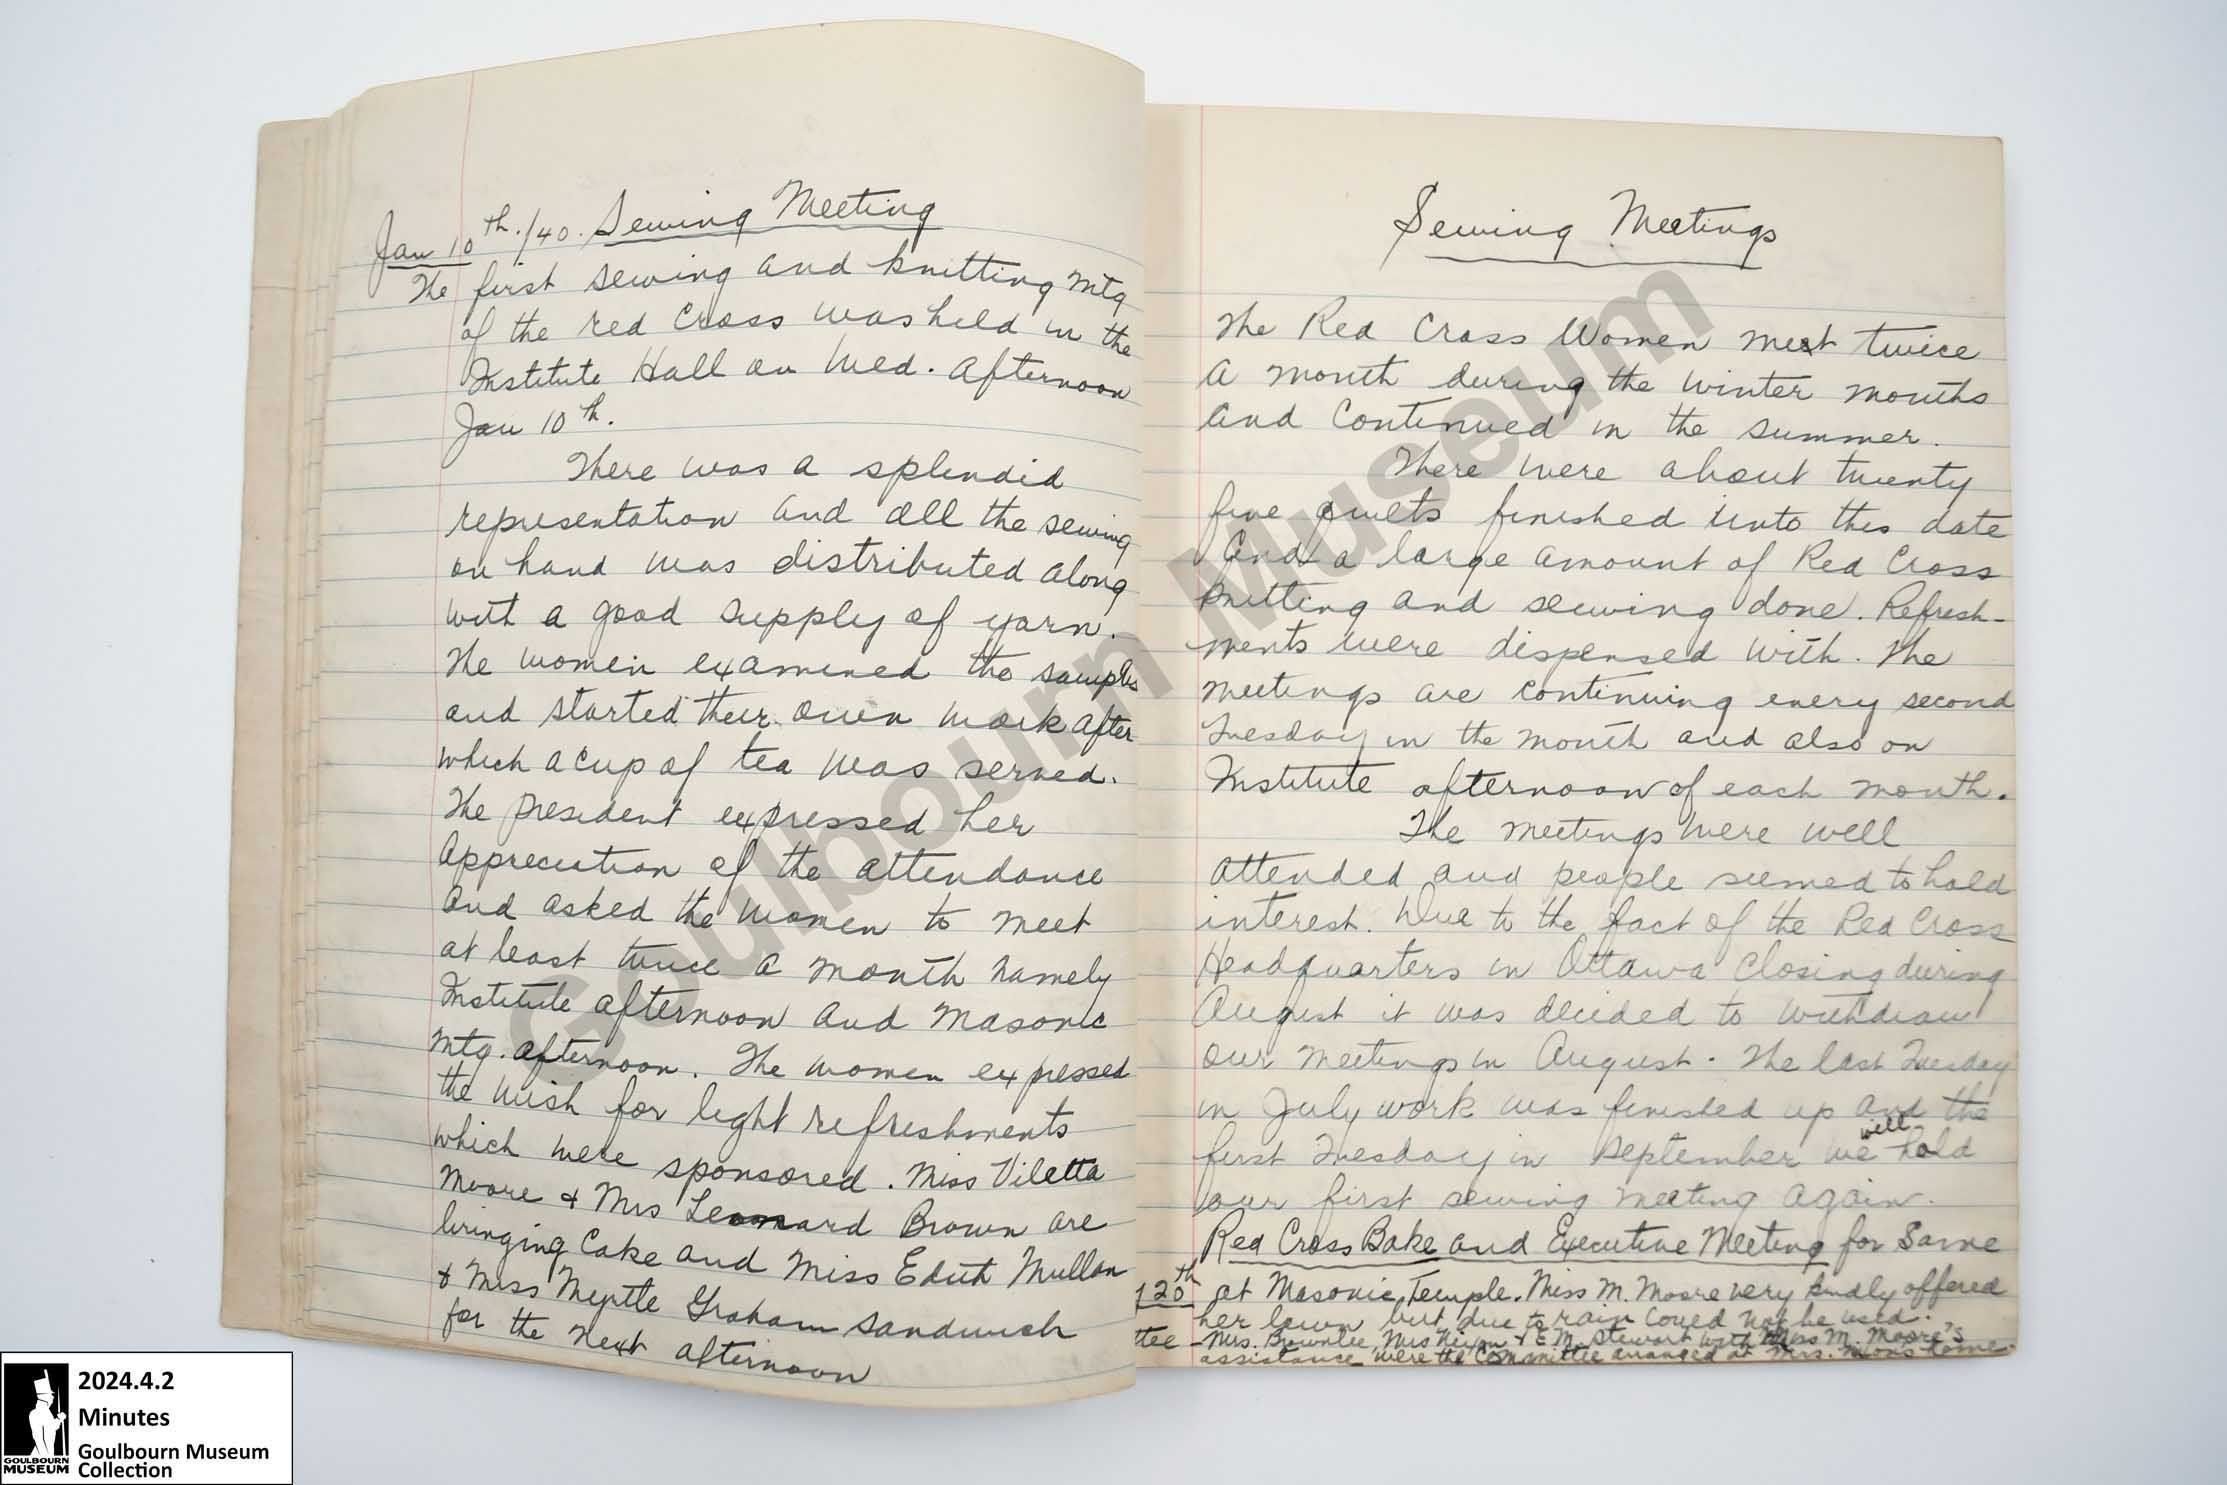 Jan 10th./40. Sewing Meeting
The first sewing and knitting mtg
of the red Cross was held in the
Institute Hall on Wed. afternoon
Jan 10th.
There was a splendid
representation and all the sewing
on hand was distributed along
with a good supply of yarn.
The women examined the samples
and started their own work after
which a cup of tea was served.
The president expressed her
appreciation of the attendance
and asked the women to meet
at least twice a month namely
Institute afternoon and Masonic
Mtg. afternoon. The women expressed
the wish for light refreshments
which were sponsored. Miss Viletta
Moore & Mrs Leonard Brown are
bringing Cake and Miss Edith Mullan
& Miss Myrtle Graham sandwich
for the next afternoon
Sewing Meetings
The Red Cross Women meet twice
a month during the winter months
and continued in the summer.
There were about twenty
five quilts finished unto this date
and a large amount of Red Cross
knitting and sewing done. Refresh-
ments were dispensed with. The
meetings are continuing every second
Tuesday in the month and also on
Institute afternoon of each month.
The meetings were well
attended and people seemed to hold
interest. Due to the fact of the Red Cross
Headquarters in Ottawa closing during
August it was decided to withdraw
our meetings in August. The last Tuesday
in July work was finished up and the
first Tuesday in September we will hold
our first sewing meeting again.
Red Cross Bake and Executive Meeting for Same
20th at Masonic Temple. Miss M. Moore very kindly offered
her lawn but due to rain could not be used.
ttee - Mrs. Brownlee, Mrs Nixon & E.M. Stewart with Miss M. Moore's
assistance were the Committee arranged at Mrs. home.
Goulbourn Museum
2024.4.2
Minutes
Goulbourn Museum
Collection
GOULBOURN
MUSEUM